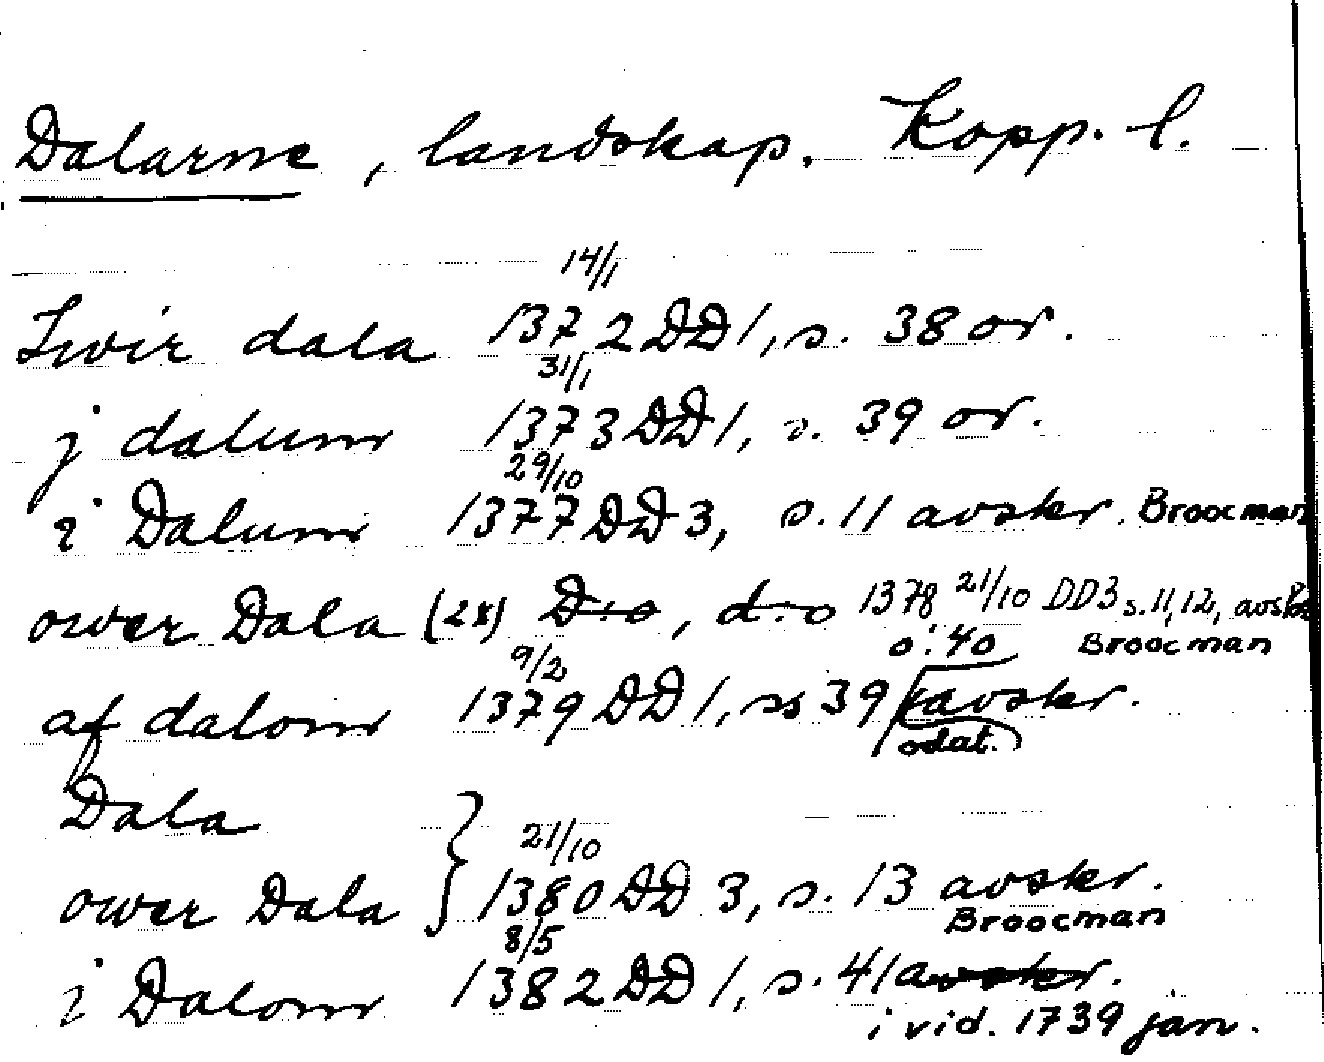 Dalarne, landskap. Kopp. l.
14/1
Iwir dala 1372 DD 1, s. 38 or.
31/1
j dalum 1373 DD 1, s. 39 or.
29/10
i Dalum 1377 DD 3, s. 11 avskr. Broocman
ower Dala (2x) D:o, d:o 1378 21/10 DD3 s. 11, 12, avskr
o. 40 Broocman
9/2
af dalom 1379 DD 1, ss 39 avskr.
odat.
Dala
21/10
ower Dala } 1380 DD 3, s. 13 avskr.
Broocman
8/5
i Dalom 1382 DD 1, s. 41 avskr.
i vid. 1739 jan.